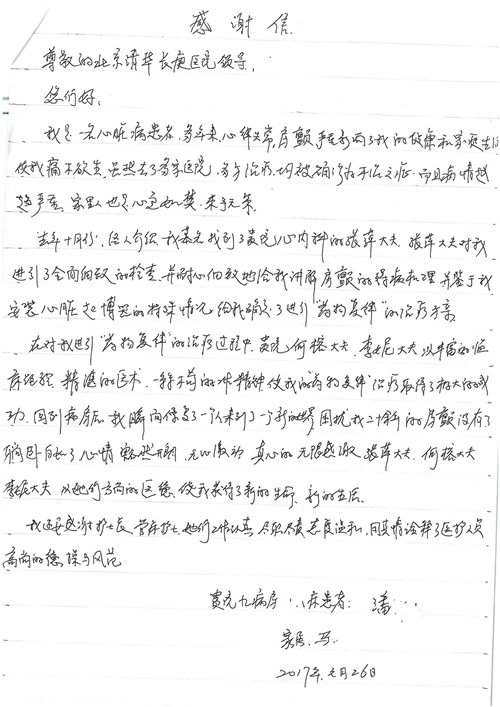 感谢信
尊敬的北京清华长庚医院领导,
您们好:
我是一名心脏病患者,多年来心律失常,房颤严重影响了我的健康和家庭生活
使我痛不欲生,虽然去了多家医院,多方治疗,均被确诊为不治之症,而且病情越
趋严重,家里人也是心急如焚,束手无策。
去年十月份,经人介绍我慕名找到了贵院心内科的张萍大夫,张萍大夫对我
进行了全面细致的检查,并耐心细致地给我讲解房颤的得病机理,并鉴于我
安装心脏起搏器的特殊情况,给我确定了进行“药物复律”的治疗方案。
在对我进行“药物复律”的治疗过程中,贵院何榕大夫,李妮大夫以丰富的临
床经验,精湛的医术,一丝不苟的工作精神,使我的“药物复律”治疗取得了极大的成
功,回到病房后,我瞬间像变了一个人来到了一个新的世界,困扰我二十年的房颤没有了
胸闷自长了,心情豁然开朗,无比激动,真心的无限感激张萍大夫,何榕大夫
李妮大夫,以她们高尚的医德,使我获得了新的生命,新的生活。
我还要感谢护士长,管床护士,她们工作认真,尽职尽责,态度温和,用真情诠释了医护人员
高尚的德操与风范
贵院九病房 床患者:潘
家属:马
2017年 月26日